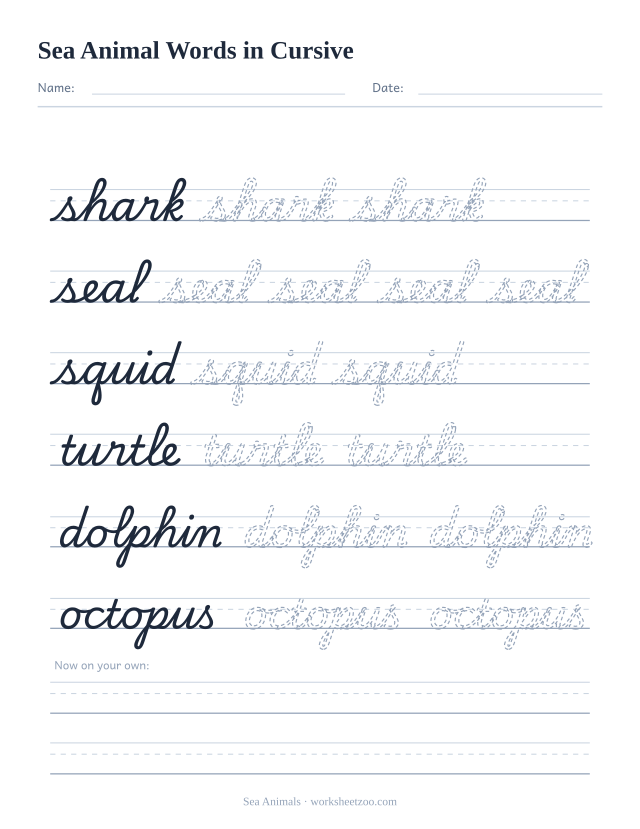 Sea Animal Words in Cursive
Name: Date:
shark shark shark
seal seal seal seal seal
squid squid squid
turtle turtle turtle
dolphin dolphin dolphin
octopus octopus octopus
Now on your own:
Sea Animals · worksheetzoo.com